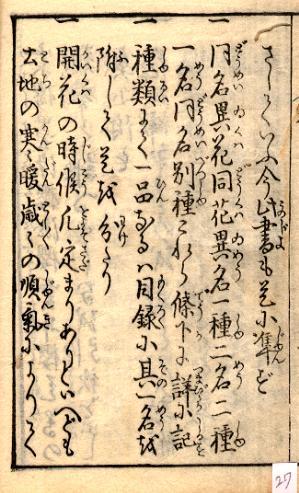 さしていふ今此書も是に准ず
一 同名異花同花異名一種二名二種
一名同名別種これら條下に詳に記
一 種類多く一品なるハ目録に其一名を
附しく是を分り
一 開花の時候凡定まりありといへども
土地の寒暖歳々の順氣によりて
27